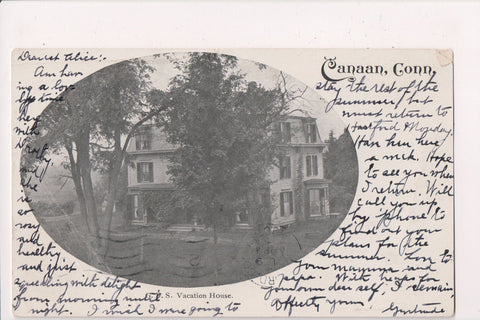 Canaan, Conn.
Dearest Alice:
Am hav
ing a lov
ely time
here
with
and
the
is
so
rosy
and
healthy
and just
squealing with delight
from morning until
night. I wish I were going to
stay the rest of the
summer, but
must return to
Hartford Monday.
Have been here
a week. Hope
to see you when
I return. Will
call you up
by 'phone to
find out your
plans for the
summer. Love to
your mamma and
papa. With heaps for
your dear self, I remain,
Affect'y yours
Gertrude
F. S. Vacation House.